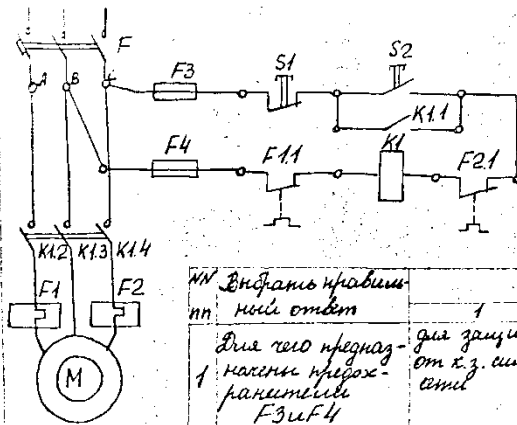 F
A B C
F3
S1
S2
K1.1
F4
F1.1
K1
F2.1
K1.2 K1.3 K1.4
F1 F2
M
NN Выбрать правиль-
пп ный ответ
1
1 Для чего предназ-
начены предох-
ранители
F3 и F4
для защи
от к.з. сил
сети